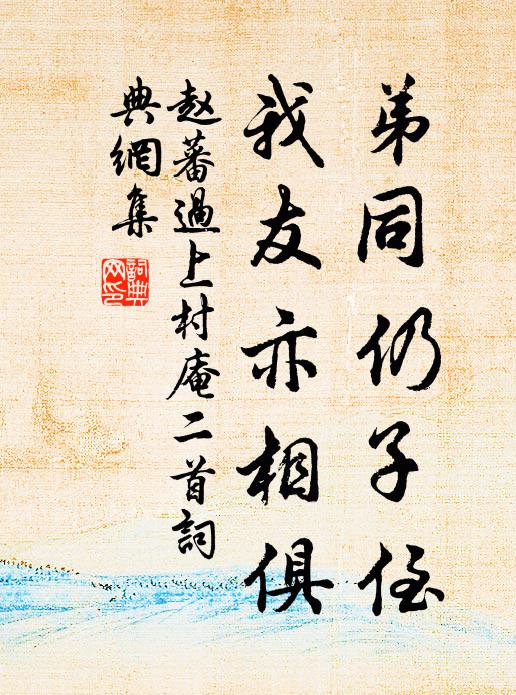 弟同仍子侄
我友亦相俱
赵蕃過上村庵二首詞
典網集
詞典
网印